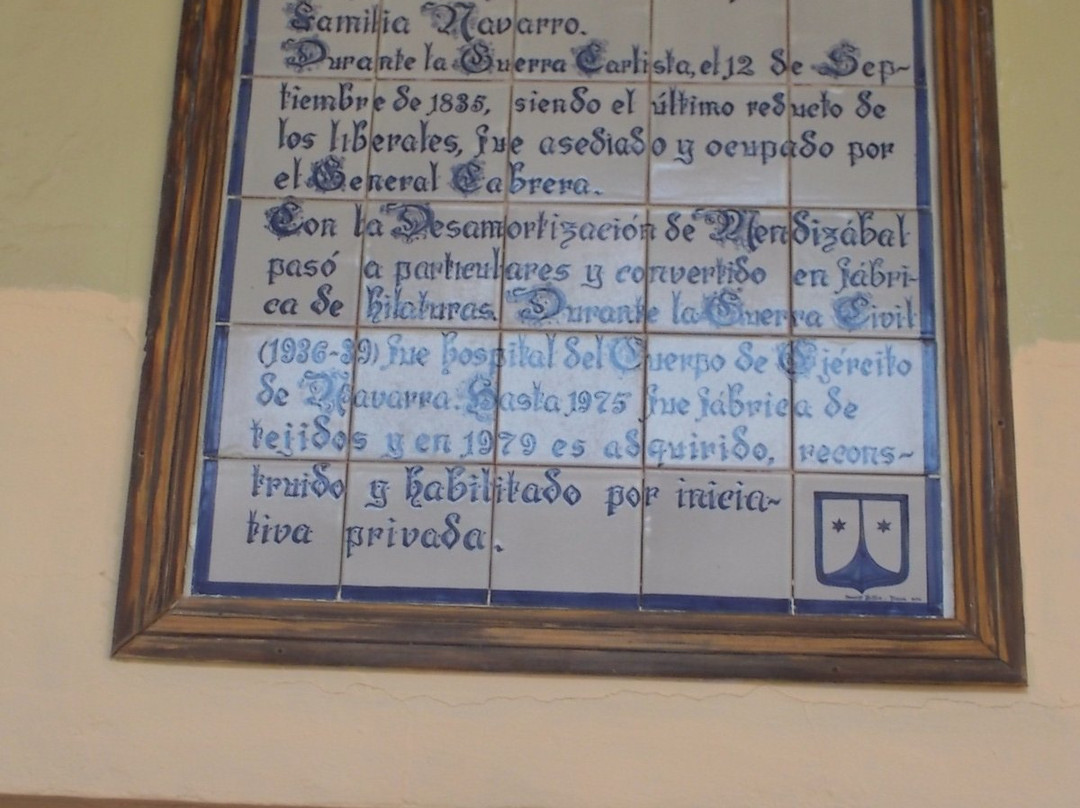 Familia Navarro.
Durante la Guerra Carlista, el 12 de Sep-
tiembre de 1835, siendo el último reducto de
los liberales, fue asediado y ocupado por
el General Cabrera.
Con la Desamortización de Mendizábal
pasó a particulares y convertido en fábri-
ca de hilaturas. Durante la Guerra Civil
(1936-39) fue hospital del Cuerpo de Ejército
de Navarra. Hasta 1975 fue fábrica de
tejidos y en 1979 es adquirido, recons-
truido y habilitado por inicia-
tiva privada.